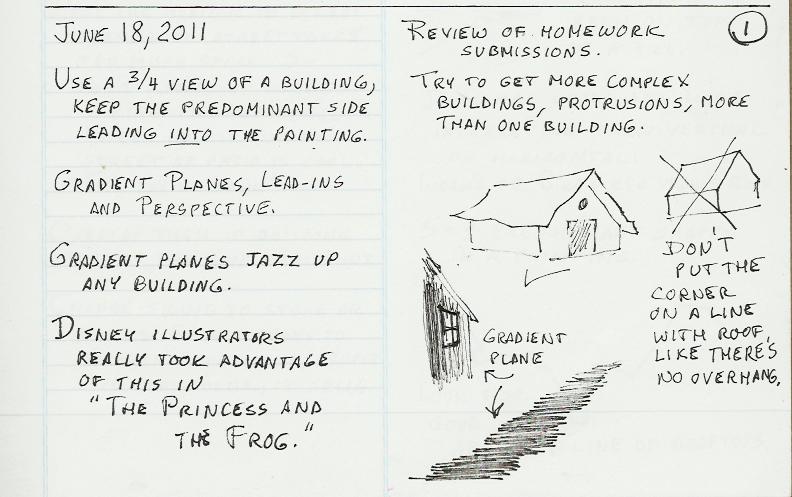 JUNE 18, 2011
USE A 3/4 VIEW OF A BUILDING,
KEEP THE PREDOMINANT SIDE
LEADING INTO THE PAINTING.
GRADIENT PLANES, LEAD-INS
AND PERSPECTIVE.
GRADIENT PLANES JAZZ UP
ANY BUILDING.
DISNEY ILLUSTRATORS
REALLY TOOK ADVANTAGE
OF THIS IN
"THE PRINCESS AND
THE FROG."
1
REVIEW OF HOMEWORK
SUBMISSIONS.
TRY TO GET MORE COMPLEX
BUILDINGS, PROTRUSIONS, MORE
THAN ONE BUILDING.
DON'T
PUT THE
CORNER
ON A LINE
WITH ROOF,
LIKE THERE'S
NO OVERHANG.
GRADIENT
PLANE